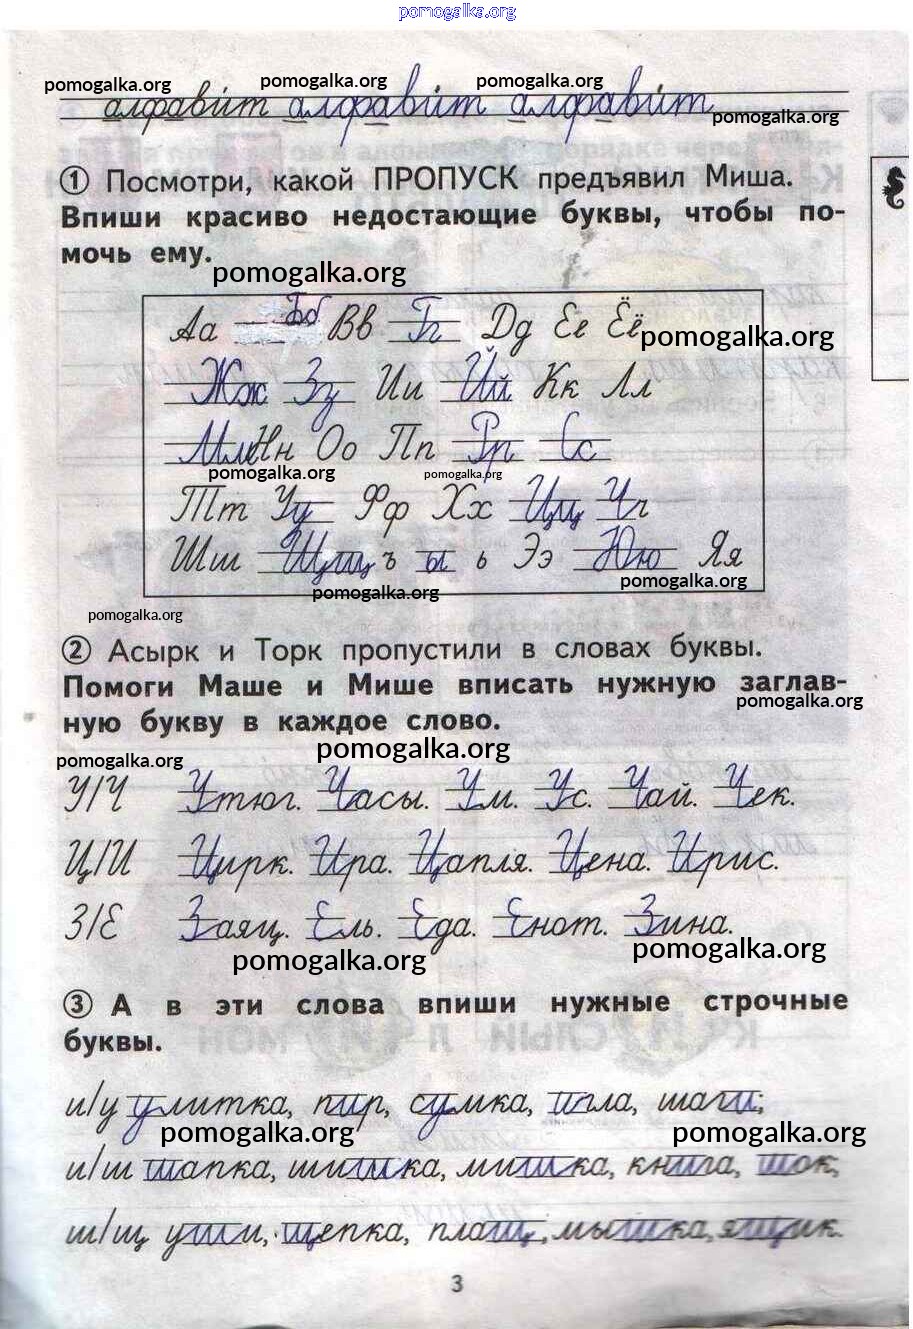 pomogalka.org
pomogalka.org pomogalka.org pomogalka.org
алфавит алфавит алфавит
pomogalka.org
1 Посмотри, какой ПРОПУСК предъявил Миша.
Впиши красиво недостающие буквы, чтобы по-
мочь ему.
pomogalka.org
Аа Бб Вв Гг Дд Ее Ёё
pomogalka.org
Жж Зз Ии Йй Кк Лл
Мм Нн Оо Пп Рр Сс
pomogalka.org pomogalka.org
Тт Уу Фф Хх Цц Чч
Шш Щщ ъ ы ь Ээ Юю Яя
pomogalka.org pomogalka.org
pomogalka.org
2 Асырк и Торк пропустили в словах буквы.
Помоги Маше и Мише вписать нужную заглав-
pomogalka.org
ную букву в каждое слово.
pomogalka.org pomogalka.org
У/Ч Утюг. Часы. Ум. Ус. Чай. Чек.
Ц/И Цирк. Ира. Цапля. Цена. Ирис.
З/Е Заяц. Ель. Еда. Енот. Зина.
pomogalka.org pomogalka.org
3 А в эти слова впиши нужные строчные
буквы.
и/у улитка, пир, сумка, игла, шаги,
pomogalka.org pomogalka.org
и/ш шапка, шишка, мишка, книга, шок,
ш/щ уши, щепка, плащ, мышка, ящик.
3